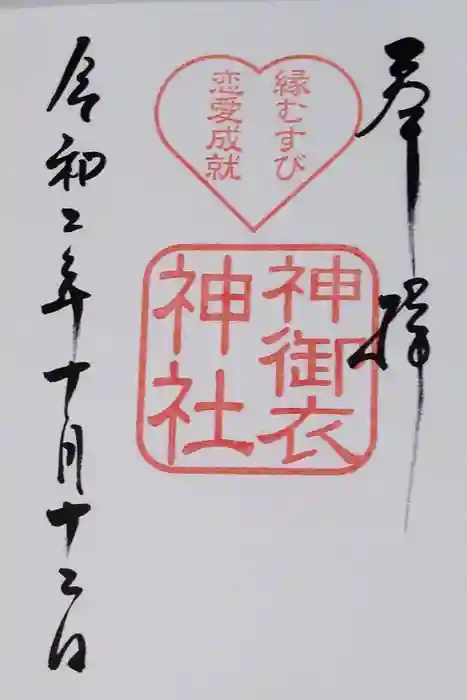 奉拝
縁むすび
恋愛成就
神御衣
神社
令和二年十月十二日